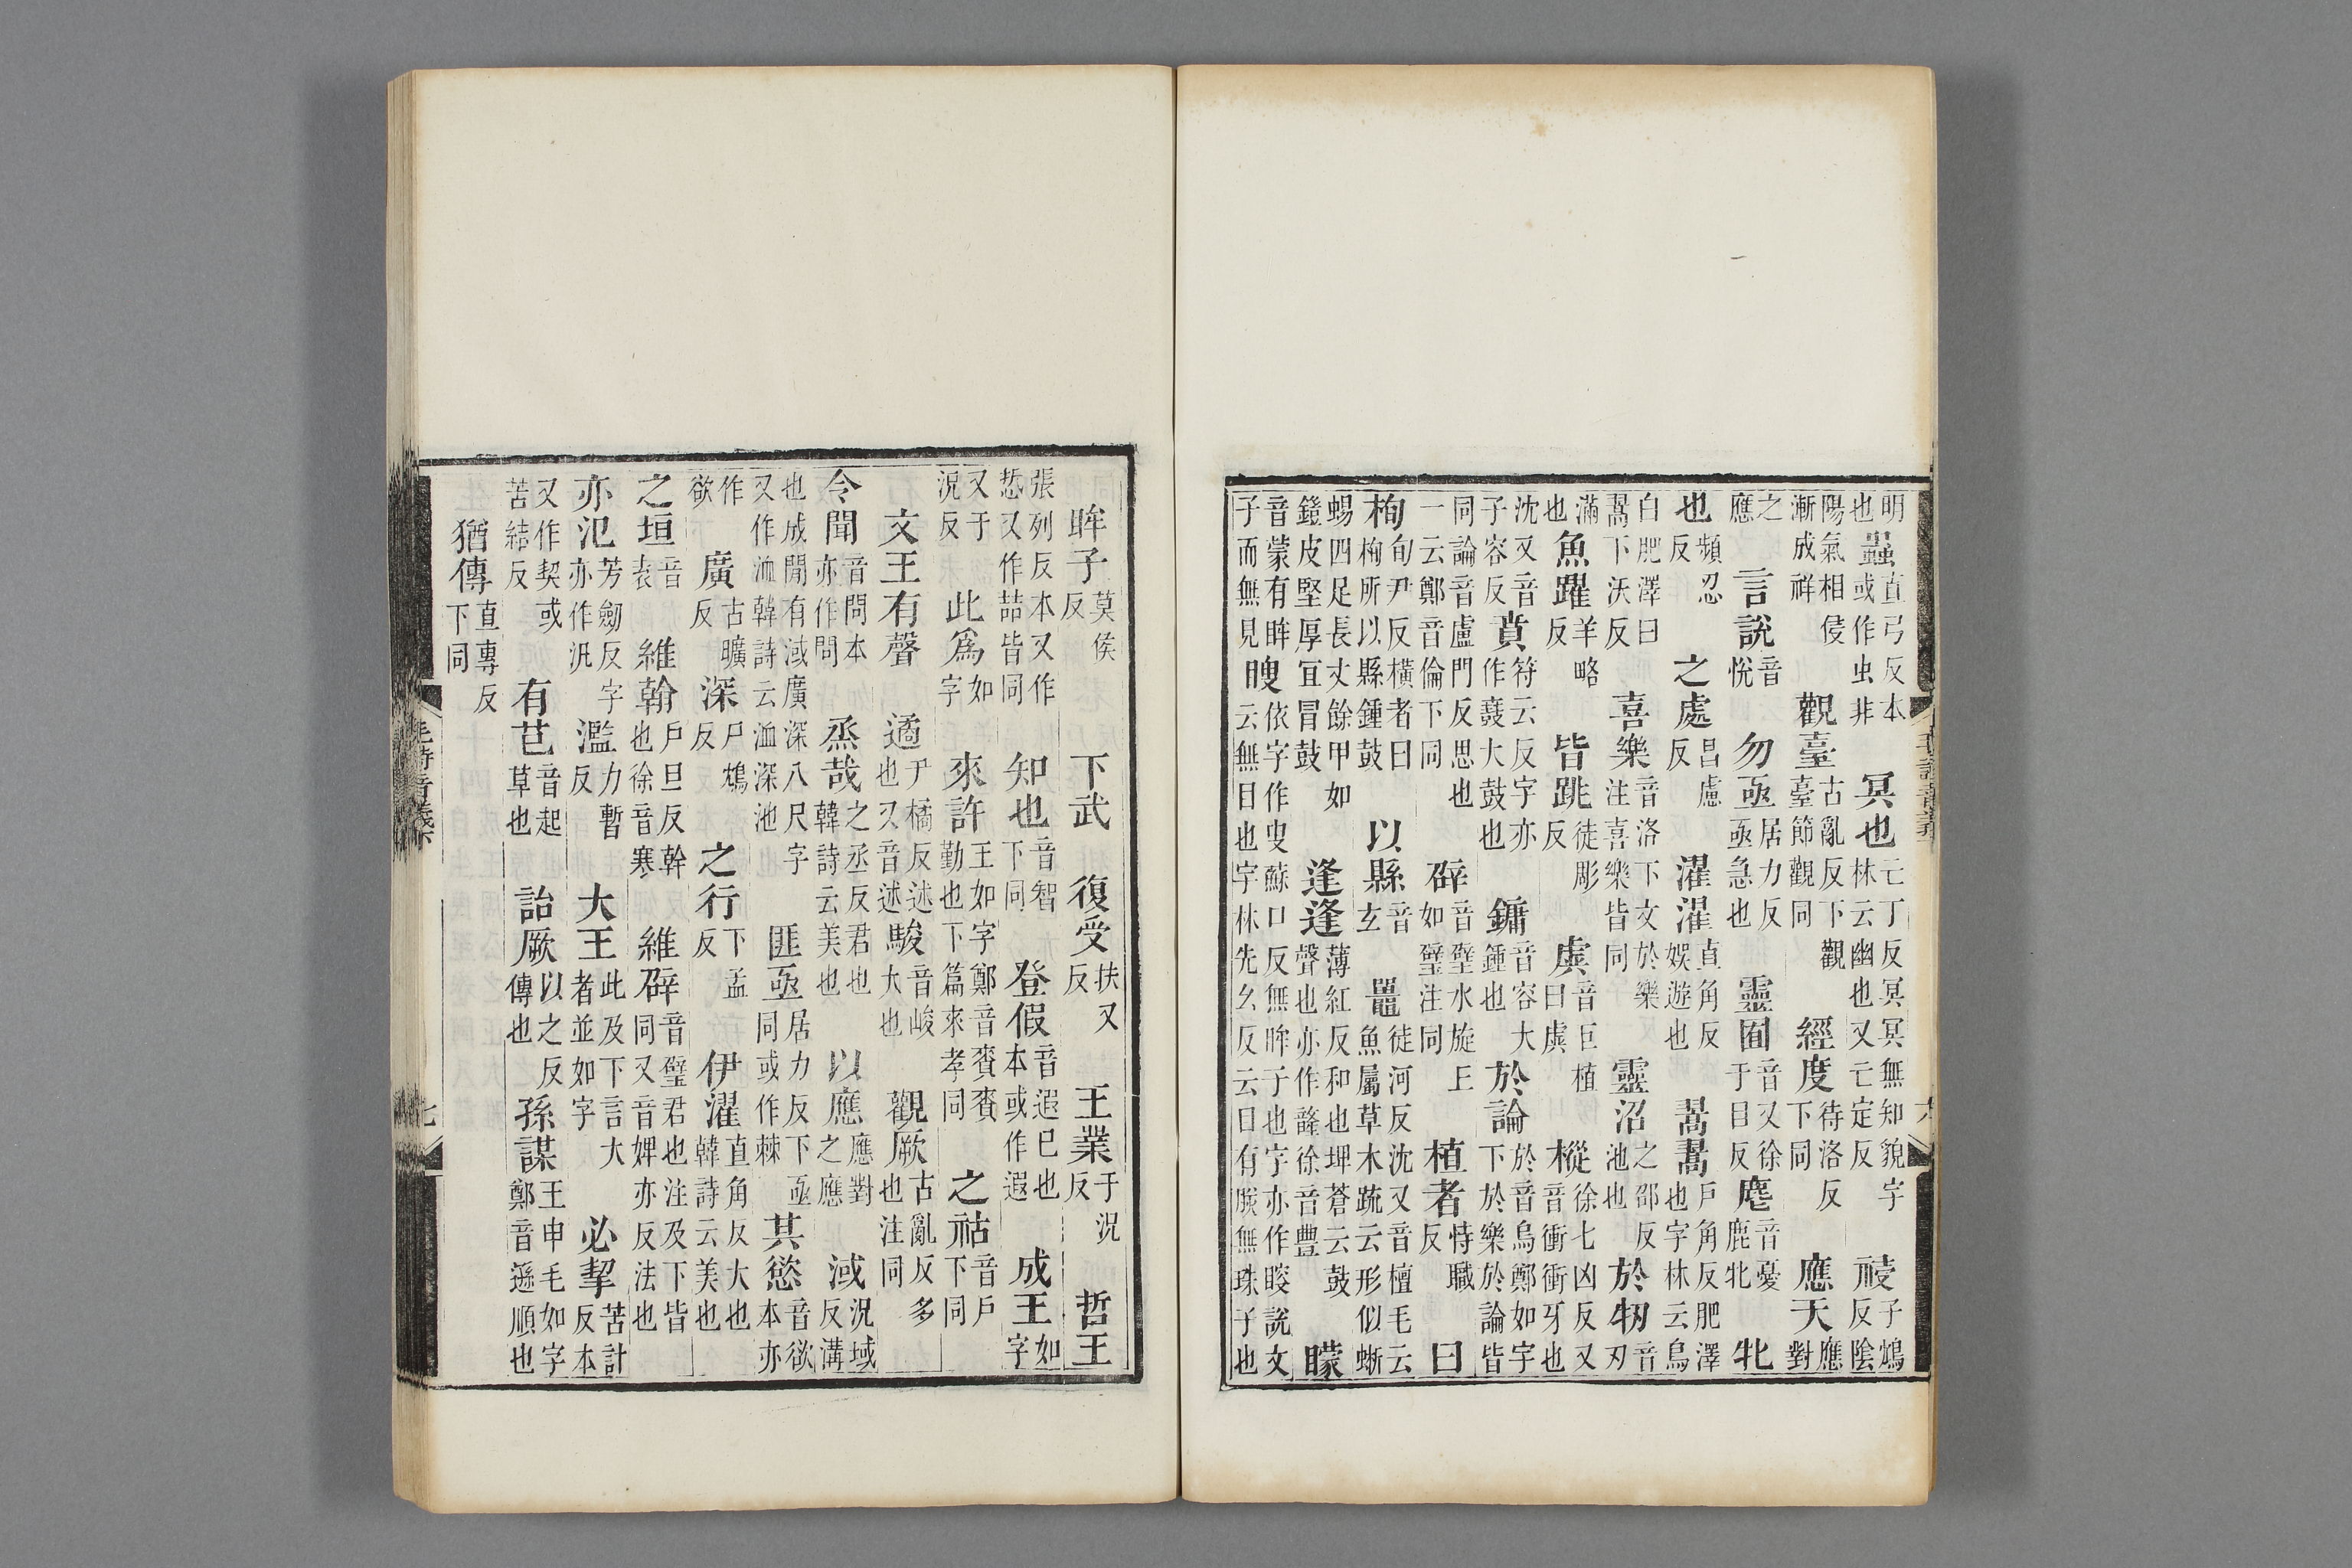 明也蟲直弓反本或作虫非冥也亡丁反冥冥無知貌字林云幽也又亡定反祲子鴆反陰
陽氣相侵漸成祥觀臺古亂反下觀臺節觀同經度待洛反下同應天應對
之應言說音悅勿亟居力反亟急也靈囿音又徐于目反麀音憂鹿牝牝
也頻忍反之處昌慮反濯濯直角反娛遊也翯翯戶角反肥澤也字林云鳥
白肥澤曰翯下沃反喜樂音洛下文於樂注喜樂皆同靈沼之邵反池也於牣音刃
滿也魚躍羊略反皆跳徒彫反虡音巨植曰虡樅徐七凶反又音衝衝牙也
沈又音子容反賁符云反字亦作鼖大鼓也鏞音容大鍾也於論於音烏鄭如字下於樂於論皆
同論音盧門反思也一云鄭音倫下同辟音璧水旋丘如璧注同植者恃職反曰
栒旬尹反橫者曰栒所以縣鍾鼓以縣音玄鼉徒河反沈又音檀毛云魚屬草木疏云形似蜥
蜴四足長丈餘甲如鎧皮堅厚宜冒鼓逢逢薄紅反和也埤蒼云鼓聲也亦作韸徐音豐矇
音蒙有眸子而無見瞍依字作叟蘇口反無眸子也字亦作䀢說文云無目也字林先幺反云目有朕無珠子也
毛詩音義下
六
眸子莫侯反下武復受扶又反王業于況反哲王
張列反本又作悊又作喆皆同知也音智下同登假音遐已也本或作遐成王如字
又于況反此為如字來許王如字鄭音賚賚勤也下篇來孝同之祜音戶下同
文王有聲遹尹橘反述也又音述駿音峻大也觀厥古亂反多也注同
令聞音問本亦作問烝哉之丞反君也韓詩云美也以應應對之應淢況域反溝
也成間有淢廣深八尺字又作洫韓詩云洫深池匪亟居力反下亟同或作棘其慾音欲本亦
作欲廣古曠反深尸鴆反之行下孟反伊濯直角反大也韓詩云美也
之垣音袁維翰戶旦反幹也徐音寒維辟音璧君也注及下皆同又音婢亦反法也
亦氾芳劒反字亦作汎濫力暫反大王此及下言大王者並如字必挈苦計反本
又作契或苦結反有芑音起草也詒厥以之反傳也孫謀王申毛如字鄭音遜順也
猶傳直專反下同
毛詩音義下
七